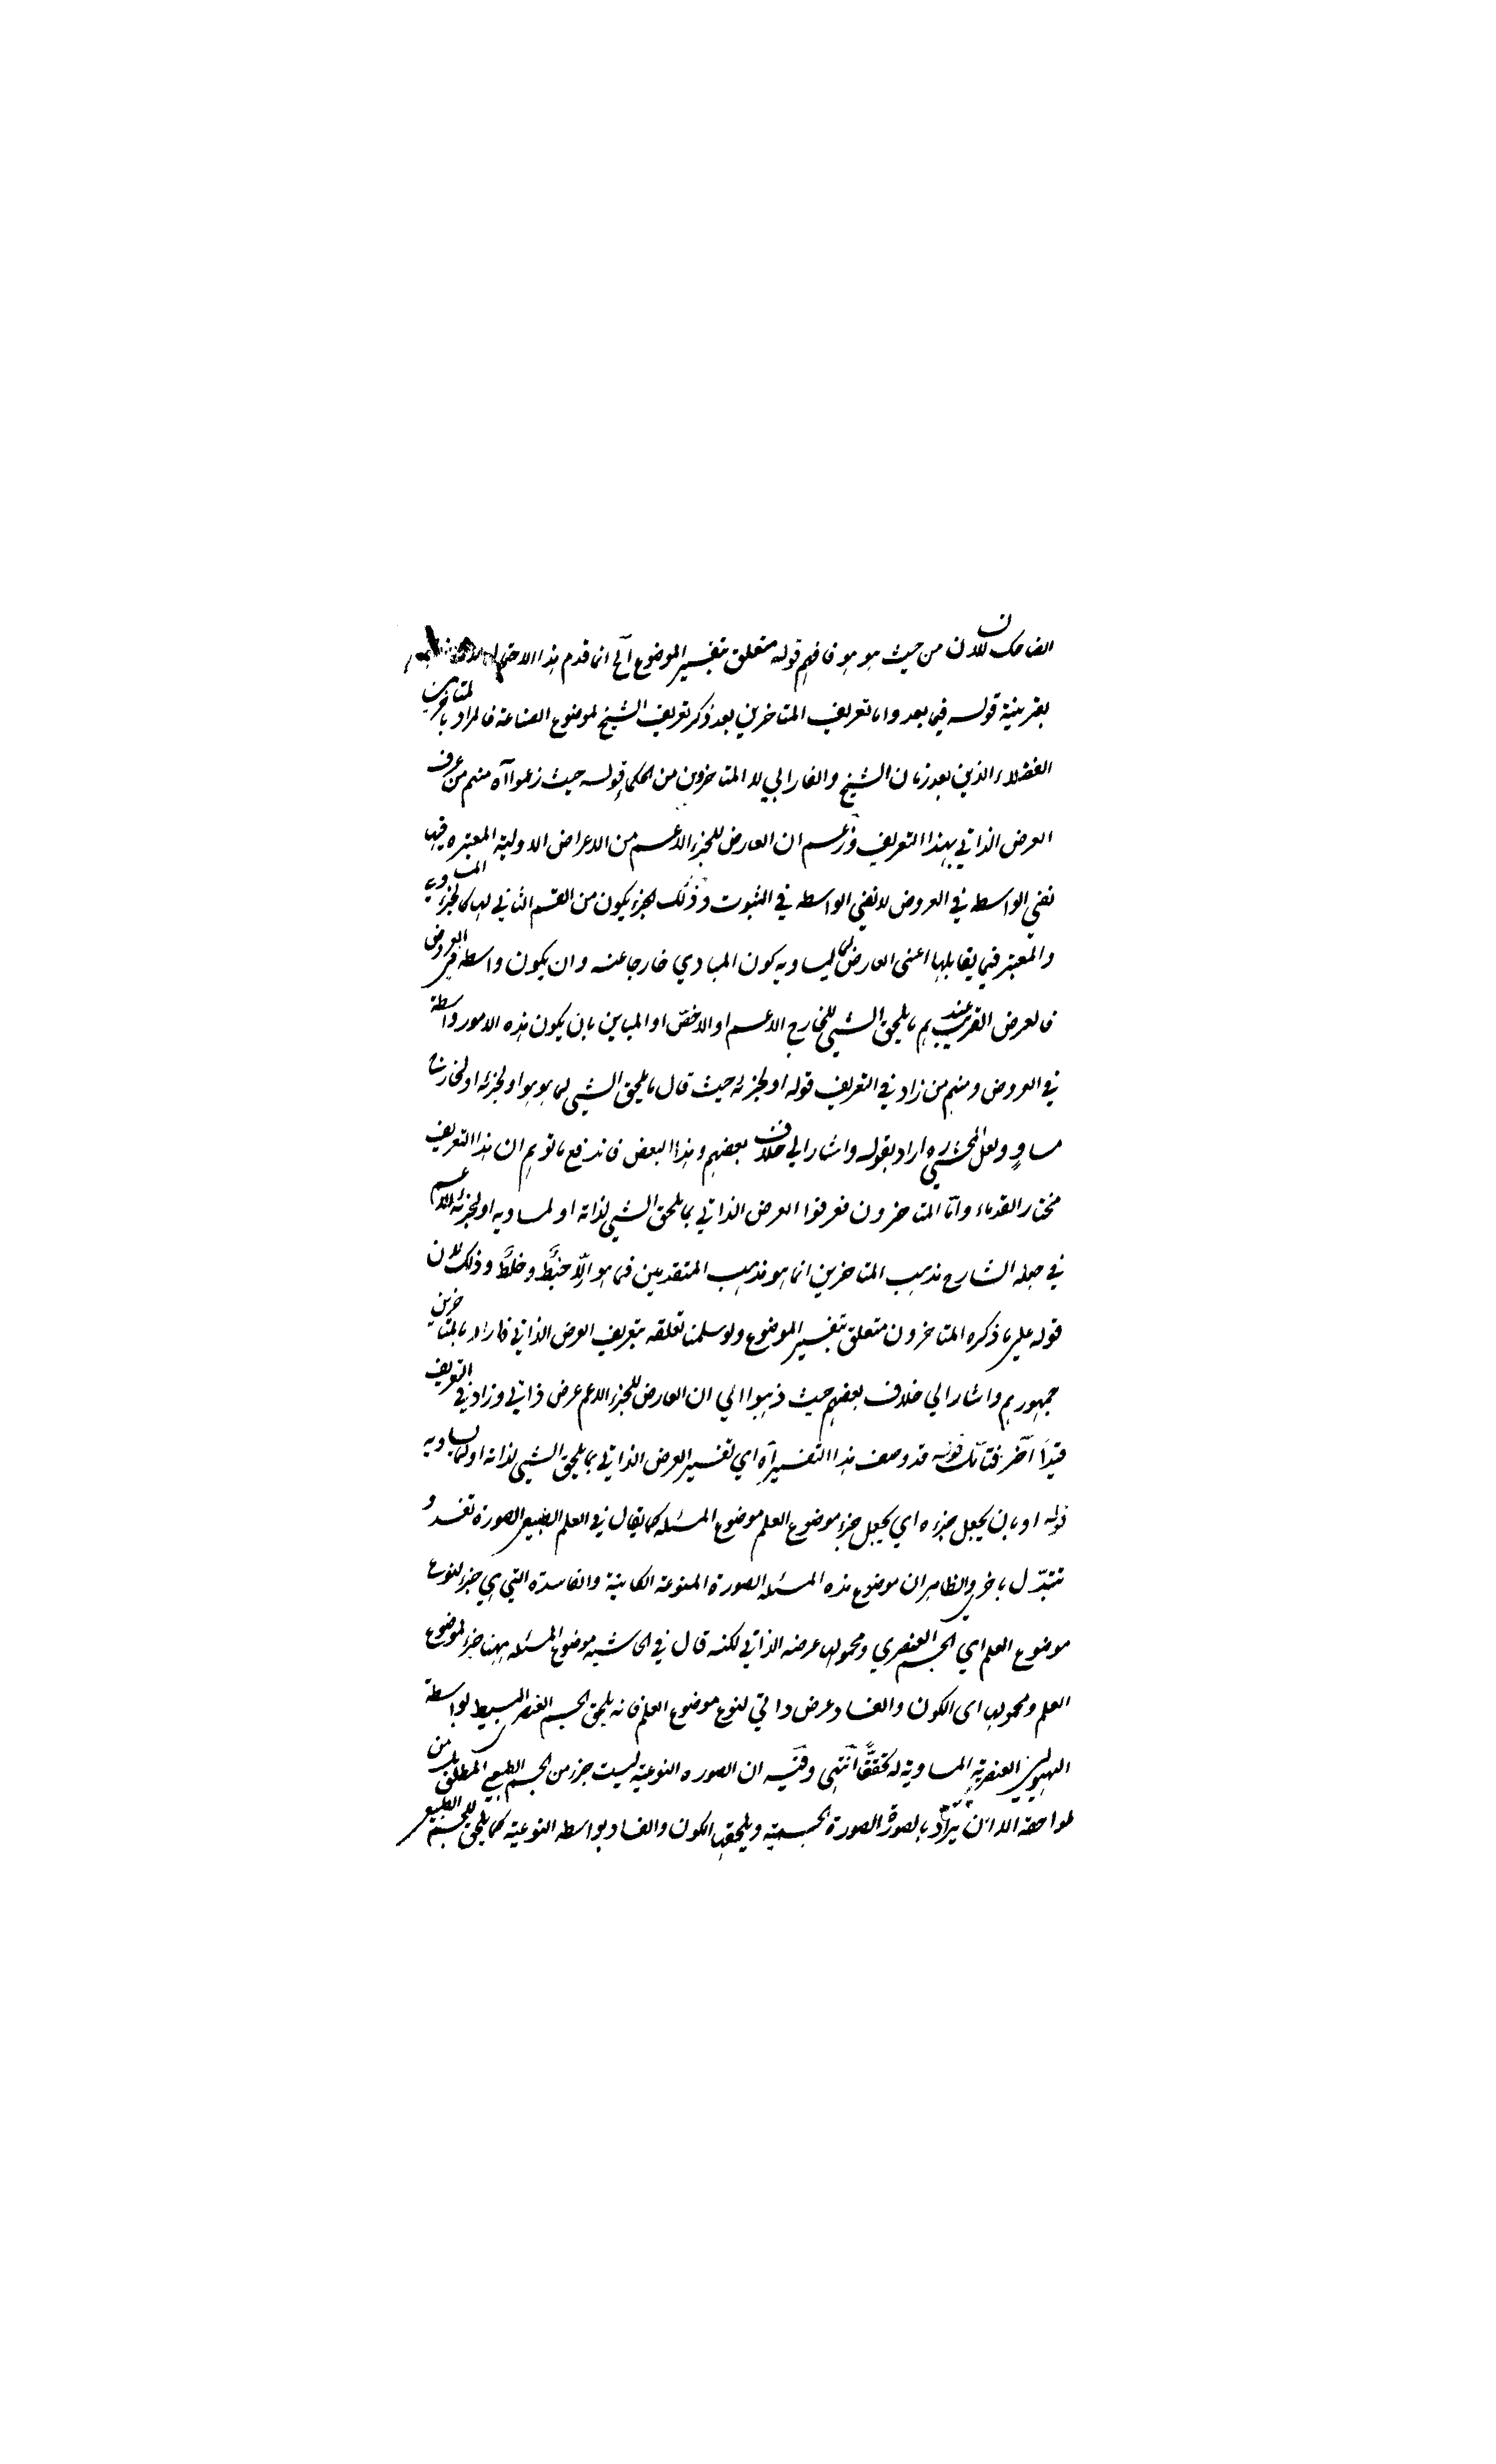 الضاحك للانسان من حيث هو هو فافهم قوله متعلق بتفسير الموضوع آلخ انما قدم هذا الاحتمال
بقرينة قوله فيما بعد واما تعريف المتاخرين بعد ذكر تعريف الشيخ لموضوع الصناعة فالمراد بالمتاخرين
الفضلاء الذين بعد زمان الشيخ والفارابي لا المتاخرون من الحكماء قوله حيث زعموا آه منهم من عرف
العرض الذاتي بهذا التعريف وزعم ان العارض للجزء الاعم من الاعراض الاولية المعتبره فيها
نفي الواسطه في العروض لا نفي الواسطه في الثبوت وذلك الجزء يكون من القسم الثاني لها كالجزء المساوي
والمعتبر فيما يقابلها اعنى العارض لما يساويه كون المساوي خارجا عنه وان يكون واسطه في العروض
فالعرض الغريب عندهم ما يلحق الشيئ للخارج الاعم او الاخص او المباين بان يكون هذه الامور واسطة
في العروض ومنهم من زاد في التعريف قوله او لجزئه حيث قال ما يلحق الشيئ لما هو هو او لجزئه او لخارج
مساوٍ ولعل المحشي ره اراد بقوله واشار الي خلاف بعضهم وهذا البعض فاندفع ما توهم ان هذا التعريف
مختار القدماء وامّا المتاخرون فعرفوا العرض الذاتي بما يلحق الشيئ لذاته او لمساويه او لجزئه الاعم
في جعله الشارح مذهب المتاخرين انما هو مذهب المتقدمين فما هو الّا خبطٌ وخلطٌ وذلك لان
قوله علي ما ذكره المتاخرون متعلق بتفسير الموضوع ولو سلمنا تعلقه بتعريف العرض الذاتي فاراد بالمتاخرين
جمهورهم واشار الي خلاف بعضهم حيث ذهبوا الي ان العارض للجزء الاعم عرض ذاتي وزاد في التعريف
قيدًا آخر فتامّل قوله قد وصف هذا التفسير آه اي تفسير العرض الذاتي بما يلحق الشيئ لذاته او لما يساويه
قوله او بان يجعل جزءه اي يجعل جزء موضوع العلم موضوع المسئله كما يقال في العلم الطبيعي الصورة تفسد و
تتبدّل باخري والظاهر ان موضوع هذه المسئله الصورة المنوعة الكاينة والفاسده التي هي جزء لنوع
موضوع العلم اي الجسم العنصري ومحمولها عرضه الذاتي لكنه قال في الحاشيه موضوع المسئله ههنا جزء لموضوع
العلم ومحمولها اى الكون والفساد عرض ذاتي لنوع موضوع العلم فانه يلحق الجسم العنصري البسيط بواسطة
الهيولي العنصرية المساوية له تحققًا انتهي وفيه ان الصوره النوعية ليست جزء من الجسم الطبيعي المطلق بل من
لواحقه الا ان يراد بالصورة الصورة الجسمية ويلحقها الكون والفساد بواسطه النوعية كما يلحق للجسم الطبيعي